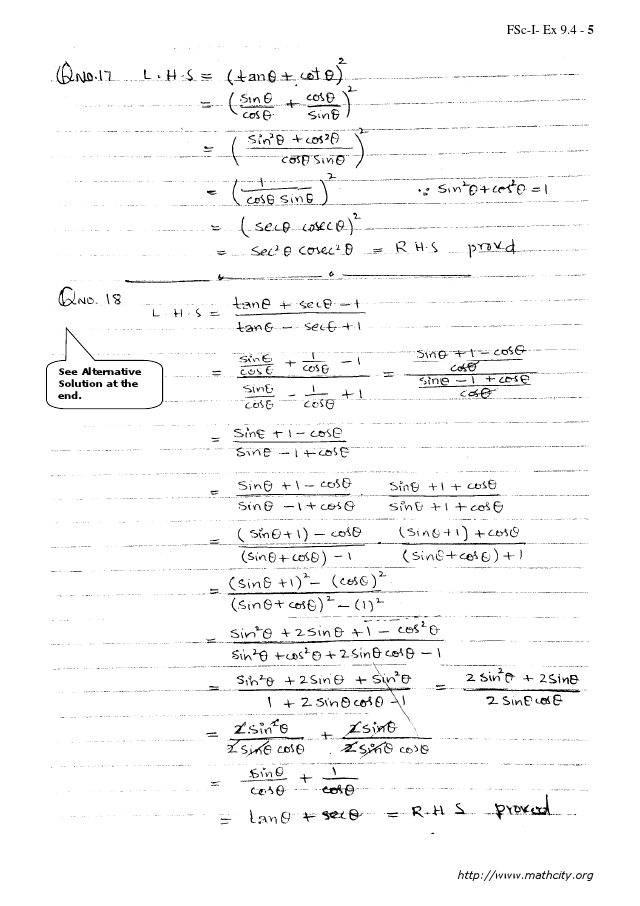 FSc-I- Ex 9.4 - 5
QNO.17 L.H.S = (tanθ + cotθ)²
= (sinθ/cosθ + cosθ/sinθ)²
= ((sin²θ + cos²θ)/(cosθ sinθ))²
= (1/(cosθ sinθ))² ∵ sin²θ + cos²θ = 1
= (secθ cosecθ)²
= sec²θ cosec²θ = R.H.S provd
QNO. 18 L.H.S = (tanθ + secθ - 1)/(tanθ - secθ + 1)
See Alternative
Solution at the
end.
= (sinθ/cosθ + 1/cosθ - 1)/(sinθ/cosθ - 1/cosθ + 1) = ((sinθ + 1 - cosθ)/cosθ)/((sinθ - 1 + cosθ)/cosθ)
= (sinθ + 1 - cosθ)/(sinθ - 1 + cosθ)
= (sinθ + 1 - cosθ)/(sinθ - 1 + cosθ) · (sinθ + 1 + cosθ)/(sinθ + 1 + cosθ)
= ((sinθ+1) - cosθ)/((sinθ+cosθ) - 1) · ((sinθ+1) + cosθ)/((sinθ+cosθ) + 1)
= ((sinθ + 1)² - (cosθ)²)/((sinθ + cosθ)² - (1)²)
= (sin²θ + 2sinθ + 1 - cos²θ)/(sin²θ + cos²θ + 2sinθcosθ - 1)
= (sin²θ + 2sinθ + sin²θ)/(1 + 2sinθcosθ - 1) = (2sin²θ + 2sinθ)/(2sinθcosθ)
= 2sin²θ/(2sinθ cosθ) + 2sinθ/(2sinθ cosθ)
= sinθ/cosθ + 1/cosθ
= tanθ + secθ = R.H.S proved
http://www.mathcity.org